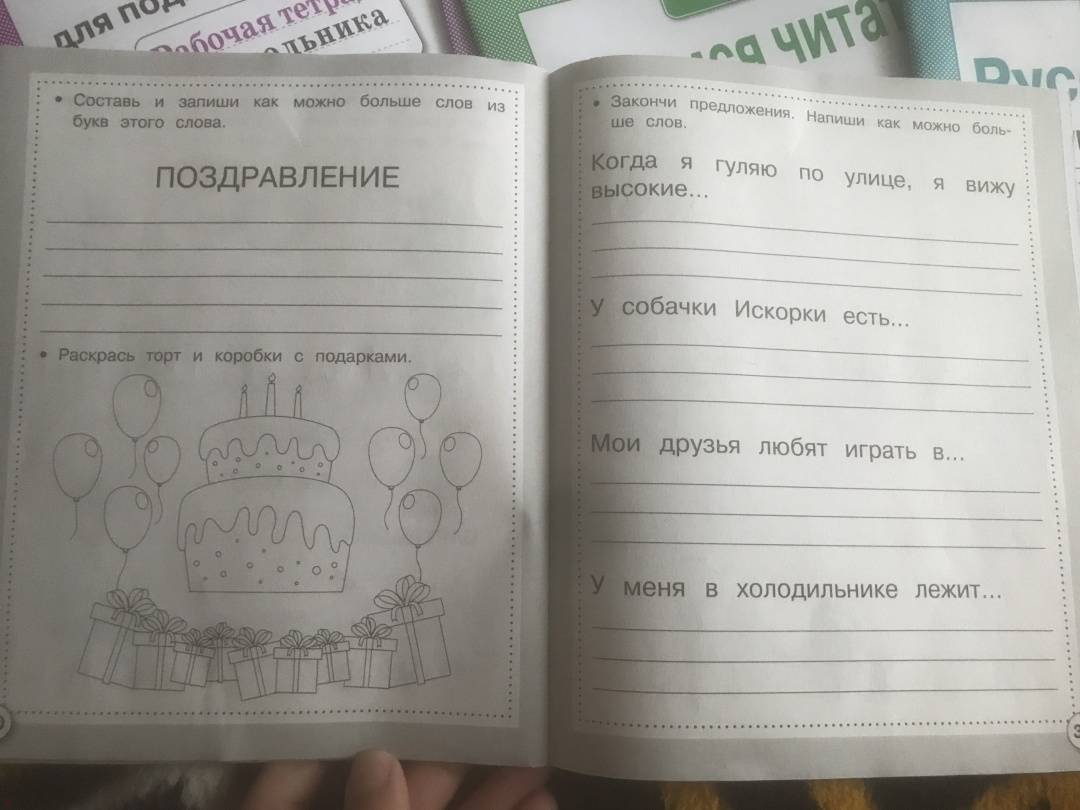 для под
Рабочая тетрад
ольника
ся чита
Рус
• Составь и запиши как можно больше слов из
букв этого слова.
ПОЗДРАВЛЕНИЕ
• Раскрась торт и коробки с подарками.
• Закончи предложения. Напиши как можно боль-
ше слов.
Когда я гуляю по улице, я вижу
высокие...
У собачки Искорки есть...
Мои друзья любят играть в...
У меня в холодильнике лежит...